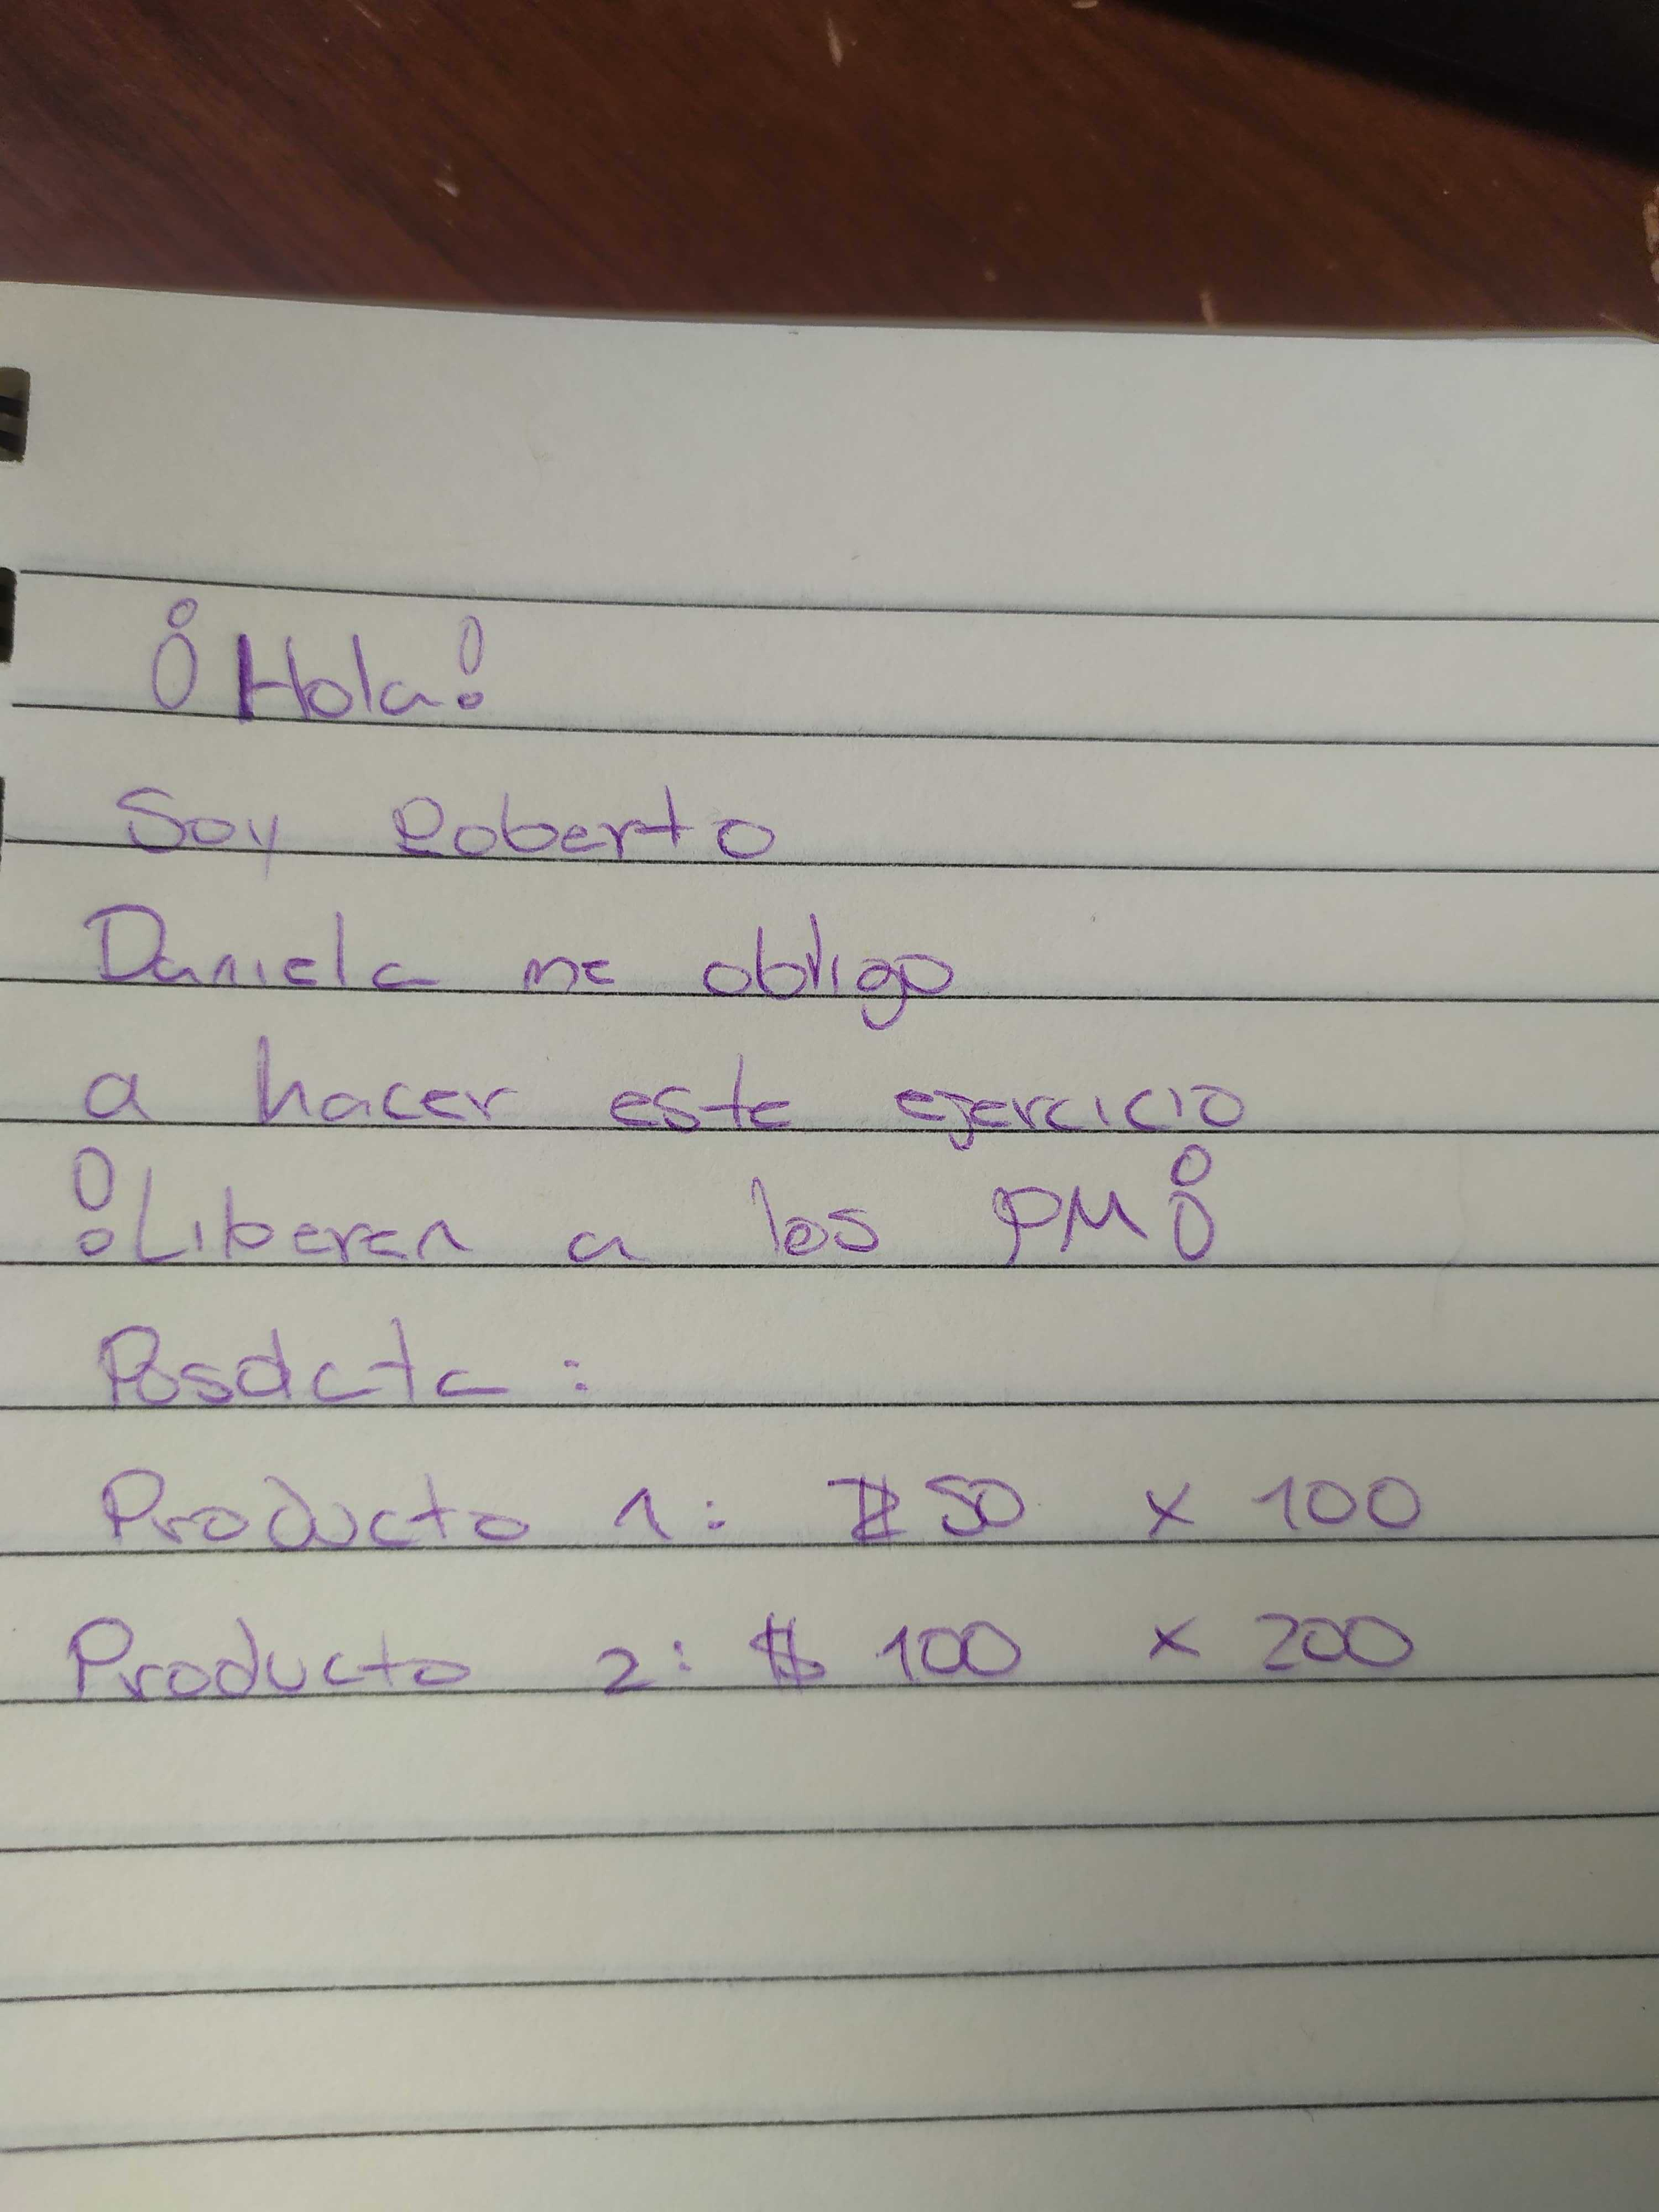 ¡Hola!
Soy Roberto
Daniela me obligo
a hacer este ejercicio
!Liberen a los PM¡
Posdata:
Producto 1: $50 x 100
Producto 2: $ 100 x 200